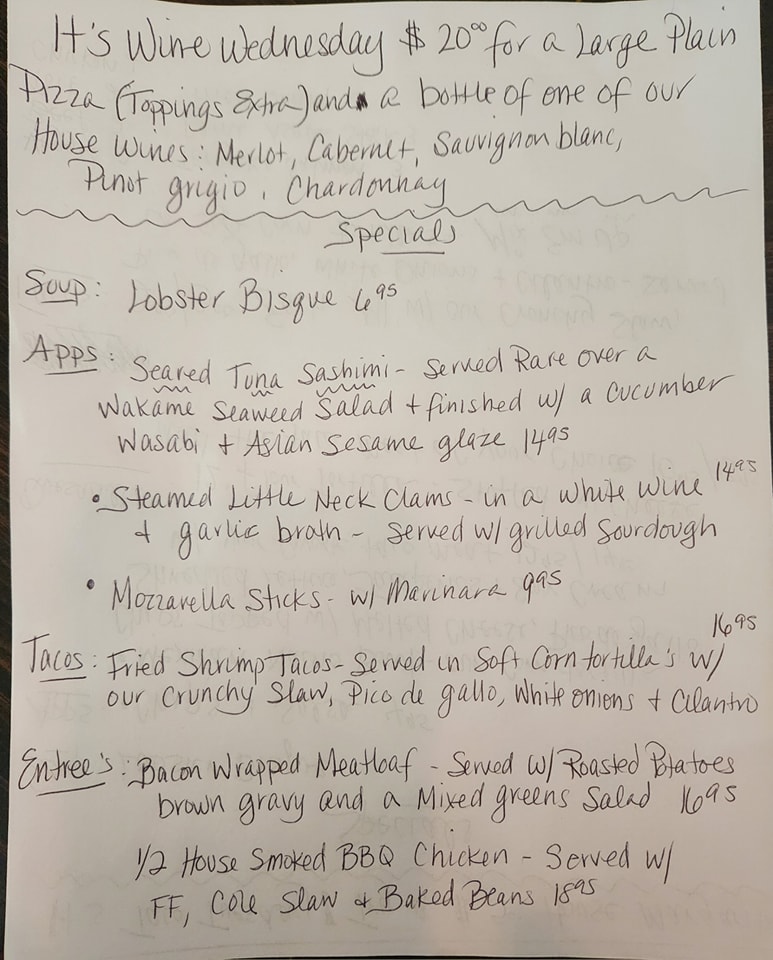 It's Wine Wednesday $20⁰⁰ for a Large Plain
Pizza (Toppings Extra) and a bottle of one of our
House Wines: Merlot, Cabernet, Sauvignon blanc,
Pinot grigio, Chardonnay
Specials
Soup: Lobster Bisque 6⁹⁵
Apps: Seared Tuna Sashimi - Served Rare over a
Wakame Seaweed Salad + finished w/ a cucumber
Wasabi + Asian Sesame glaze 14⁹⁵
• Steamed Little Neck Clams - in a white wine 14⁹⁵
+ garlic broth - Served w/ grilled Sourdough
• Mozzarella Sticks - w/ Marinara 9⁹⁵
16⁹⁵
Tacos: Fried Shrimp Tacos - Served in Soft Corn tortilla's w/
our Crunchy Slaw, Pico de gallo, White onions + Cilantro
Entree's: Bacon Wrapped Meatloaf - Served w/ Roasted Potatoes
brown gravy and a Mixed greens Salad 16⁹⁵
1/2 House Smoked BBQ Chicken - Served w/
FF, Cole Slaw + Baked Beans 18⁹⁵